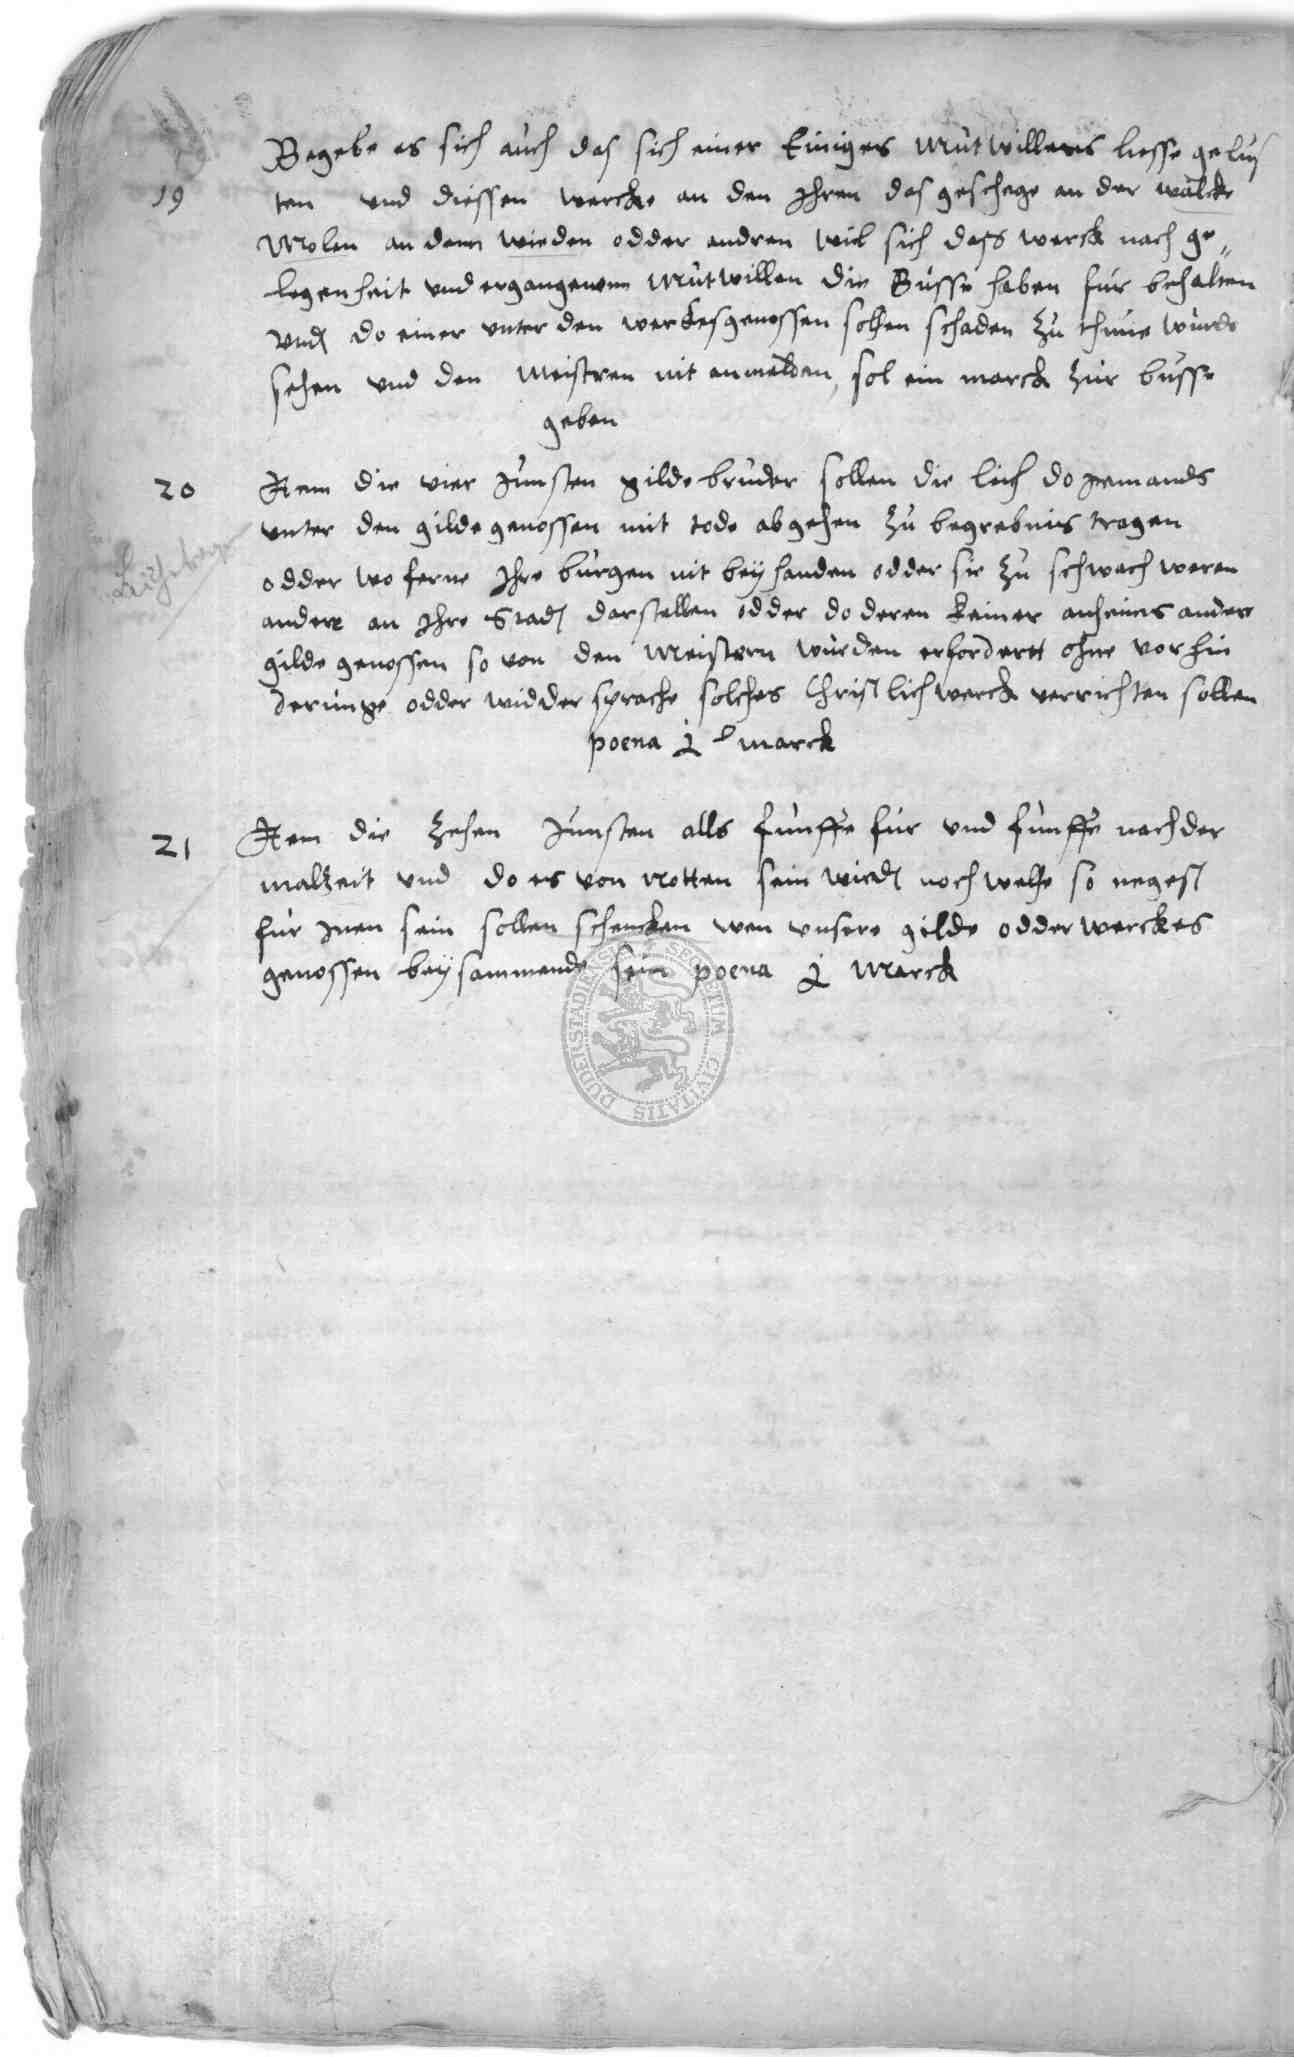 Begebe es sich auch das sich einer Einiges Mutwillens liesse gelus
19 ten und diessen wercke an den Ihren das geschege an der walcke
Molen an dem wieden odder andren wil sich dass werck nach ge„
legenheit und ergangenem Mutwillen die Busse haben fur behalten
Und do einer unter den werckesgenossen solhen schaden zu thune wurde
sehen und den Meistren nit anmelden, sol ein marck zur busse
geben
20 Item die vier Junsten gilde bruder sollen die leich do jemands
unter den gilde genossen mit tode abgehen zu begrebnis tragen
odder wo ferne Ihre burgen nit bey handen odder sie zu schwach weren
andere an Ihre Stadt darstellen odder do deren keiner anheims andere
gilde genossen so von den Meistern wurden erfordertt ohne vorhin
derunge odder widder sprache solches Christlich werck verrichten sollen
poena j marck
21 Item die zehen Junsten alls funffe fur und funffe nach der
malzeit und do es von notten sein wird noch welhe so negest
fur inen sein sollen schencken wen unsere gilde odder werckes
genossen bey sammende sein poena j Marck
SECRETUM CIVITATIS DUDERSTADIENSIS